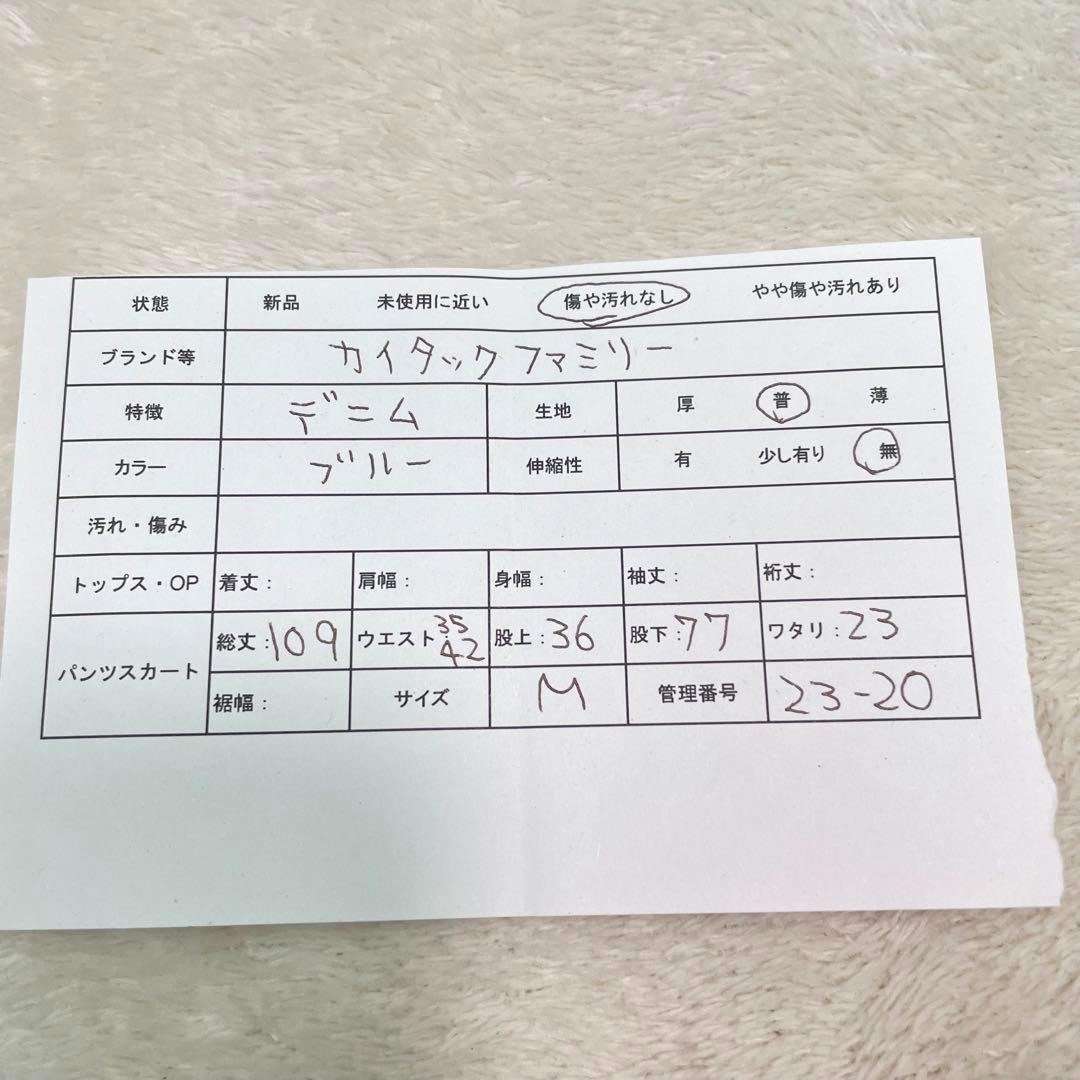 状態 新品 未使用に近い 傷や汚れなし やや傷や汚れあり
ブランド等 カイタックファミリー
特徴 デニム 生地 厚 普 薄
カラー ブルー 伸縮性 有 少し有り 無
汚れ・傷み
トップス・OP 着丈: 肩幅: 身幅: 袖丈: 裄丈:
パンツスカート 総丈:109 ウエスト 35 42 股上:36 股下:77 ワタリ:23
裾幅: サイズ M 管理番号 23-20